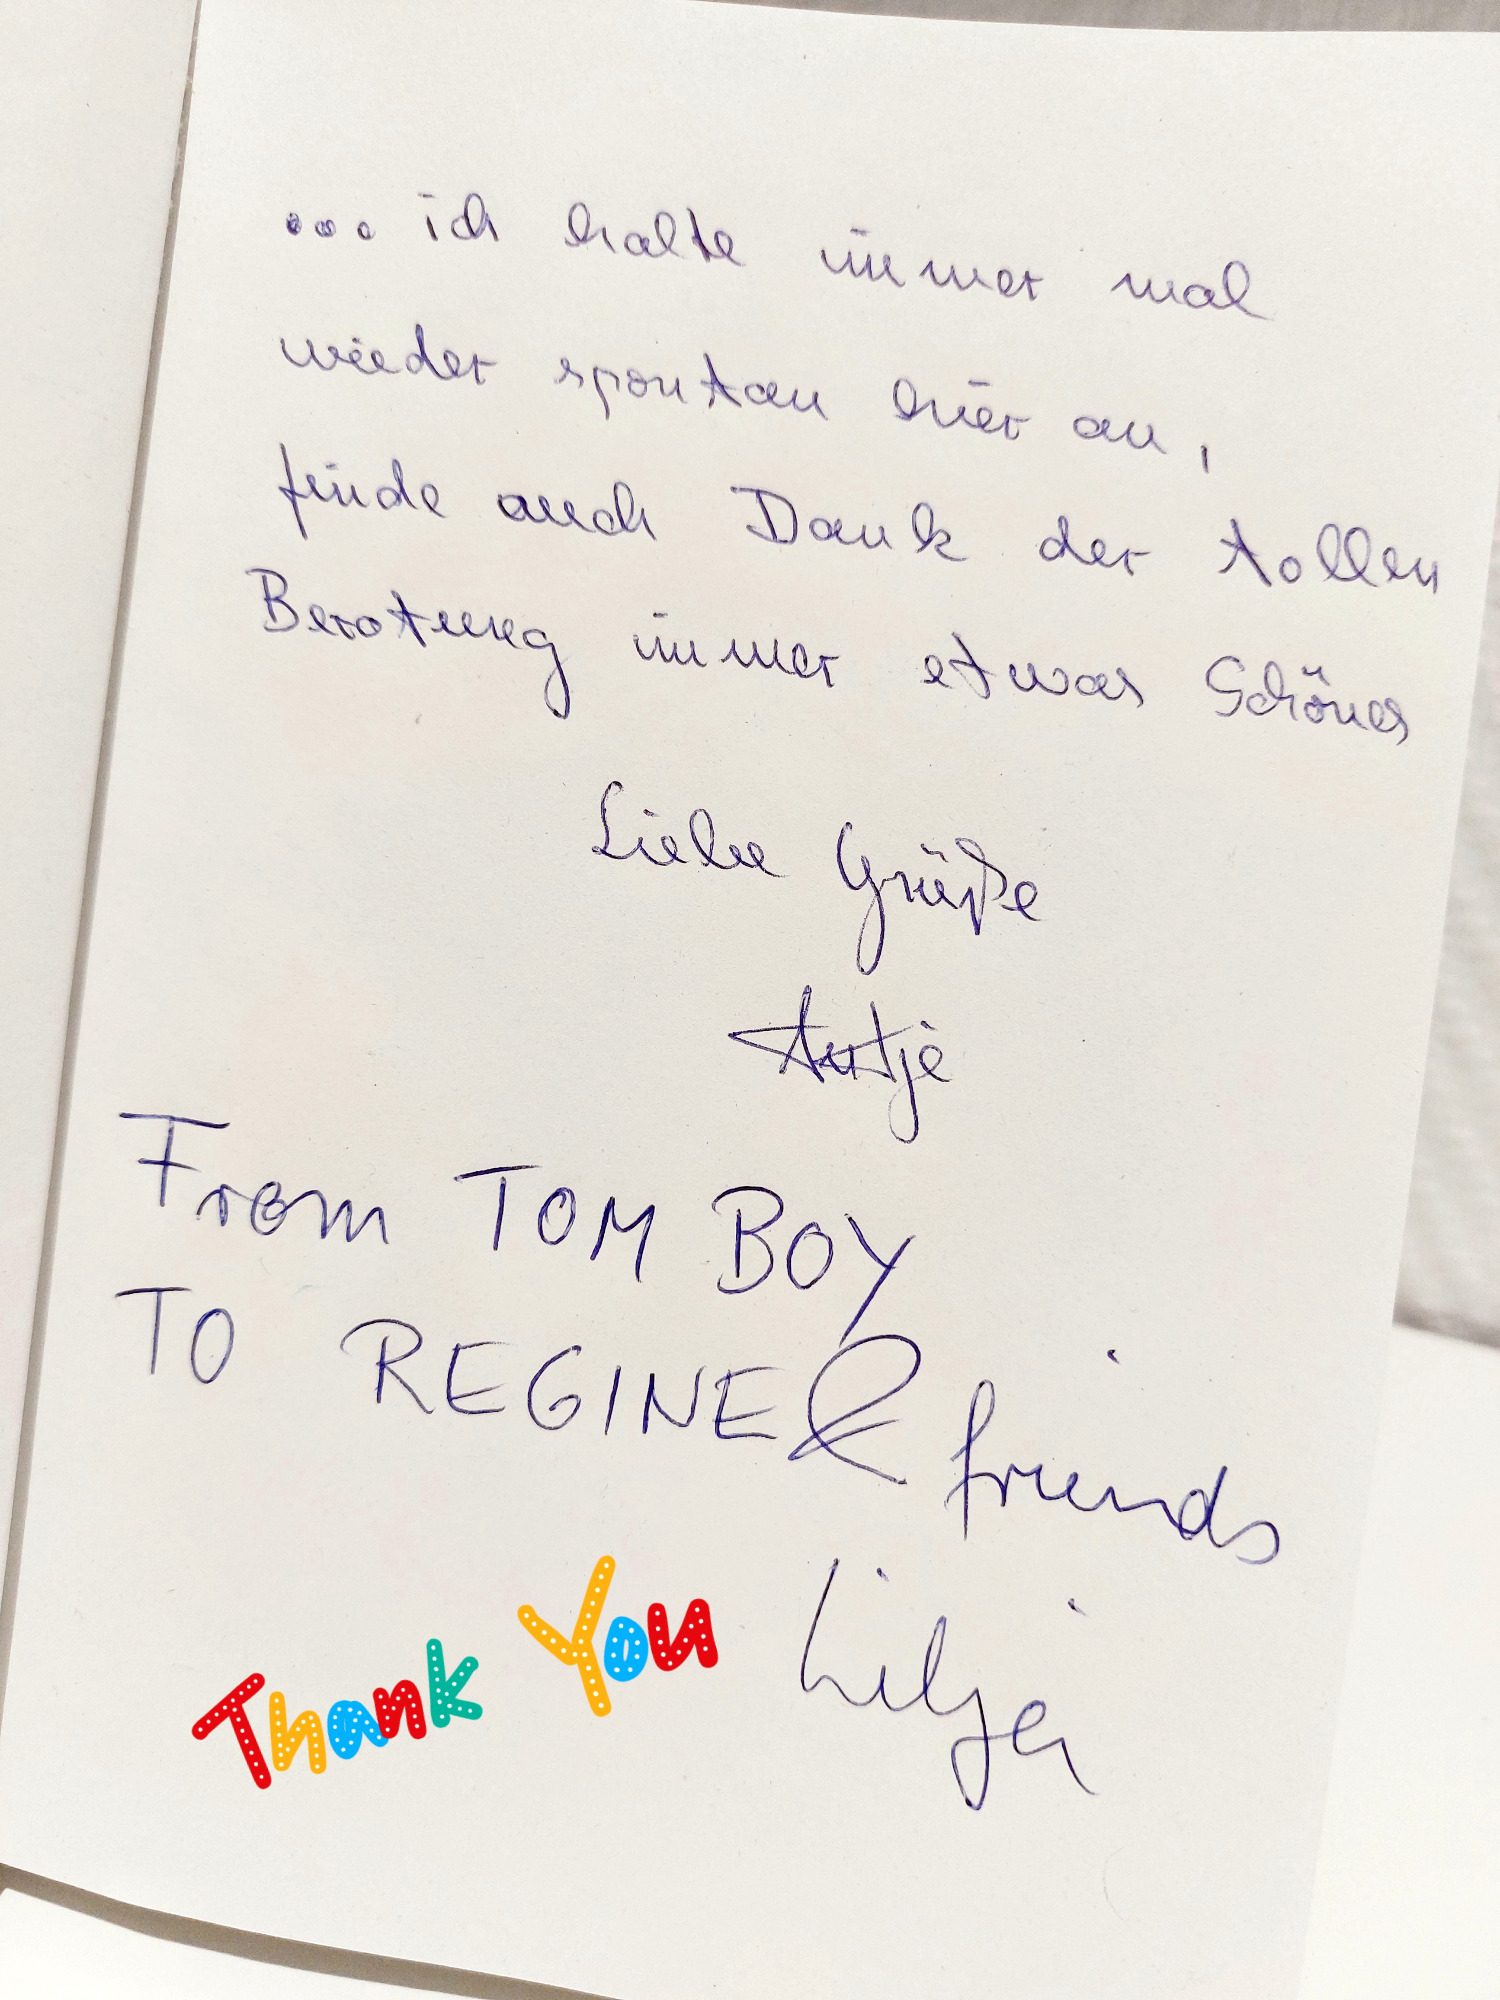 ... ich halte immer mal
wieder spontan hier an,
finde auch Dank der tollen
Beratung immer etwas Schönes
Liebe Grüße
Antje
From TOM BOY
TO REGINE & friends
Thank You
Lilja